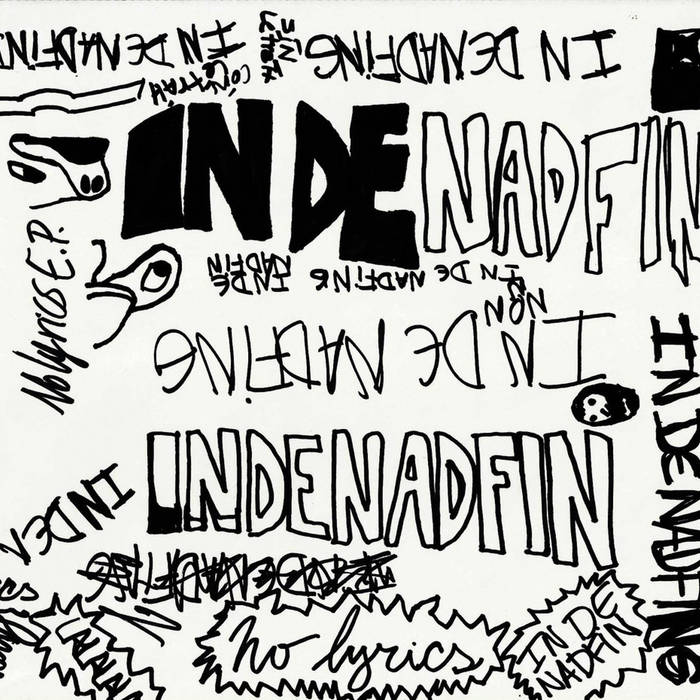 IN DENADFING
IN DENADFING
IN DENADFIN
No lyrics E.P.
IN DE
NADFIN
IN DE NADFING
NON
IN DE NADFING
INDENADFIN
IN DE NADFING
IN DEN
no lyrics
IN DE
NADFIN